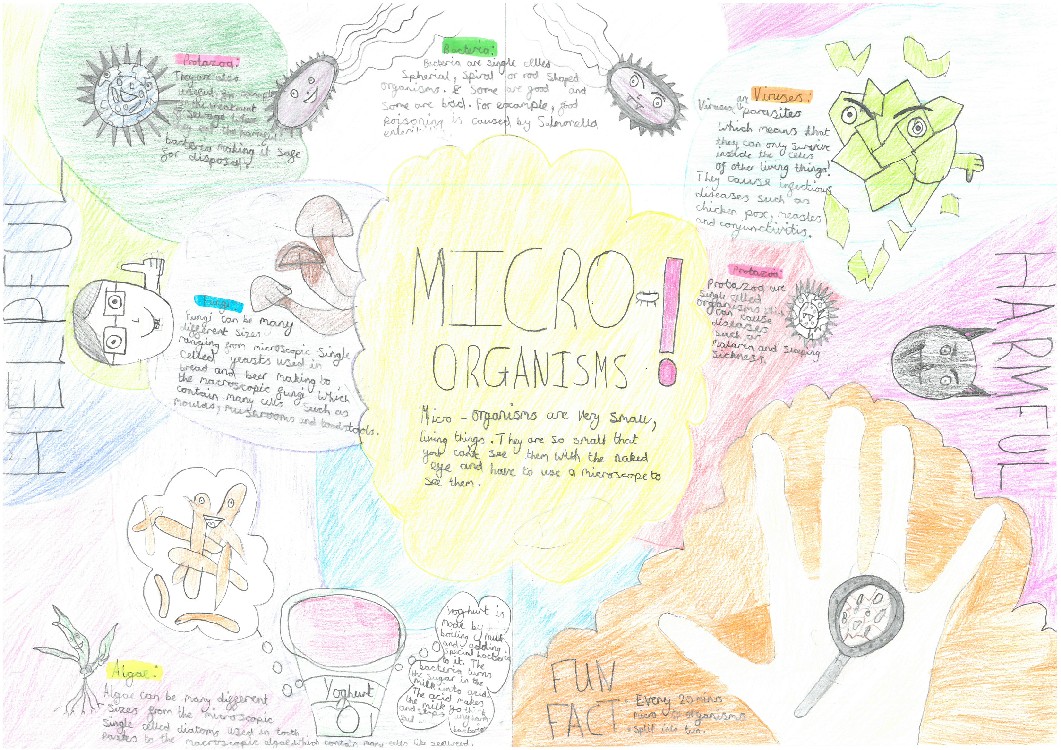 HELPFUL
Protazoa:
They are also
useful, for example
in the treatment
of sewage where
they eat the harmful
bacteria making it safe
for disposal!
Bacteria:
Bacteria are single celled
Spherial, Spiral or rod shaped
organisms. & Some are good and
Some are bad. For example, food
poisoning is caused by Salmonella
Viruses:
Viruses are parasites
which means that
they can only survive
inside the cells
of other living things!
They cause infectious
diseases such as
chicken pox, measles
and conjunctivitis.
Fungi:
Fungi can be many
different sizes
ranging from microscopic single
celled yeasts used in
bread and beer making to
the macroscopic fungi which
contain many cells such as
moulds, mushrooms and toadstools.
MICRO-
ORGANISMS!
Micro - organisms are very small,
living things. They are so small that
you can't see them with the naked
eye and have to use a microscope to
see them.
Protazoa:
Protazoa are
single celled
organisms which
can cause
diseases
such as
Malaria and Sleeping
Sickness.
HARMFUL
Algae:
Algae can be many different
Sizes from the microscopic
Single celled diatoms used in tooth
pastes to the macroscopic algae which contain many cells like seaweed.
Yoghurt
Yoghurt is
made by
boiling milk
and adding
special bacteria
to it. The
bacteria turns
the sugar in the
milk into acid.
The acid makes
the milk go
and stops
bacteria
FUN
FACT:
Every 20 mins
micro-organisms
split into two.